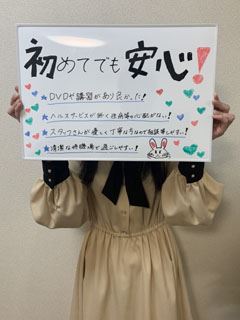 初めてでも安心!
★DVDや講習があり良かった!
★ヘルスサービスが無く性病等の心配がない!
★スタッフさんが優しく丁寧な方なので相談等しやすい!
★清潔な待機場で過ごしやすい!